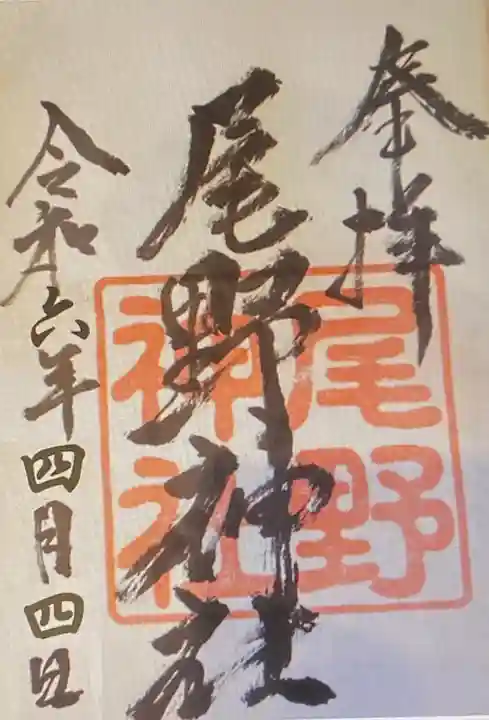 奉拝
尾野神社
令和六年四月四日
尾野
神社